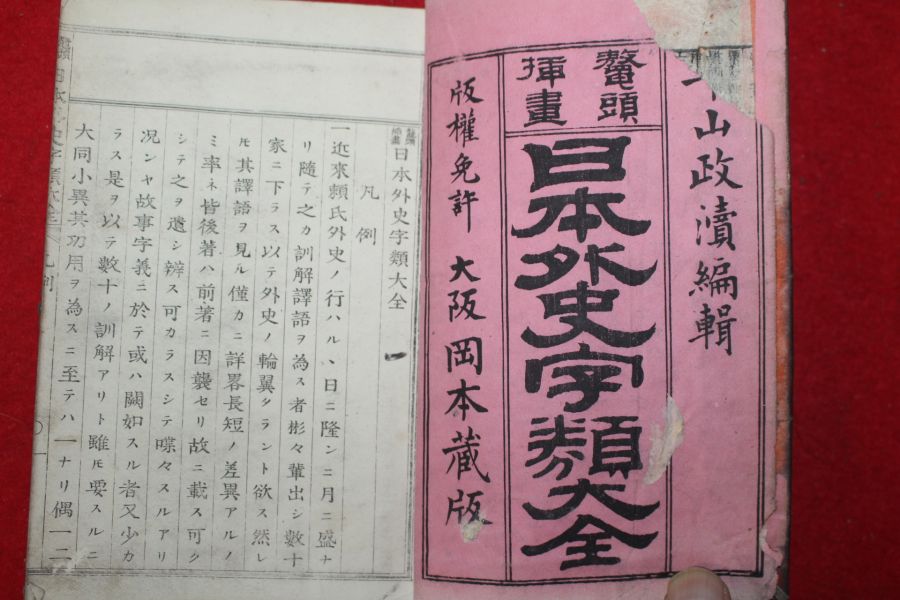 山政瀆編輯
鼇頭
挿畫
日本外史字類大全
版權免許 大阪岡本藏版
鼇頭
挿畫
日本外史字類大全
凡例
一近來頼氏外史ノ行ハルヽ日ニ隆ンニ月ニ盛ナ
リ隨テ之カ訓解譯語ヲ為ス者彬々輩出シ數十
家ニ下ラス以テ外史ノ輪翼タラント欲ス然レ
𪜈其譯語ヲ見ル僅カニ詳畧長短ノ差異アルノ
ミ率ネ皆後著ハ前著ニ因襲セリ故ニ載ス可ク
シテ之ヲ遺シ辨ス可カラスシテ喋々スルアリ
况ンヤ故事字義ニ於テ或ハ闕如スル者又少カ
ラス是ヲ以テ數十ノ訓解アリト雖𪜈要スルニ
大同小異其功用ヲ為スニ至テハ一ナリ偶一二